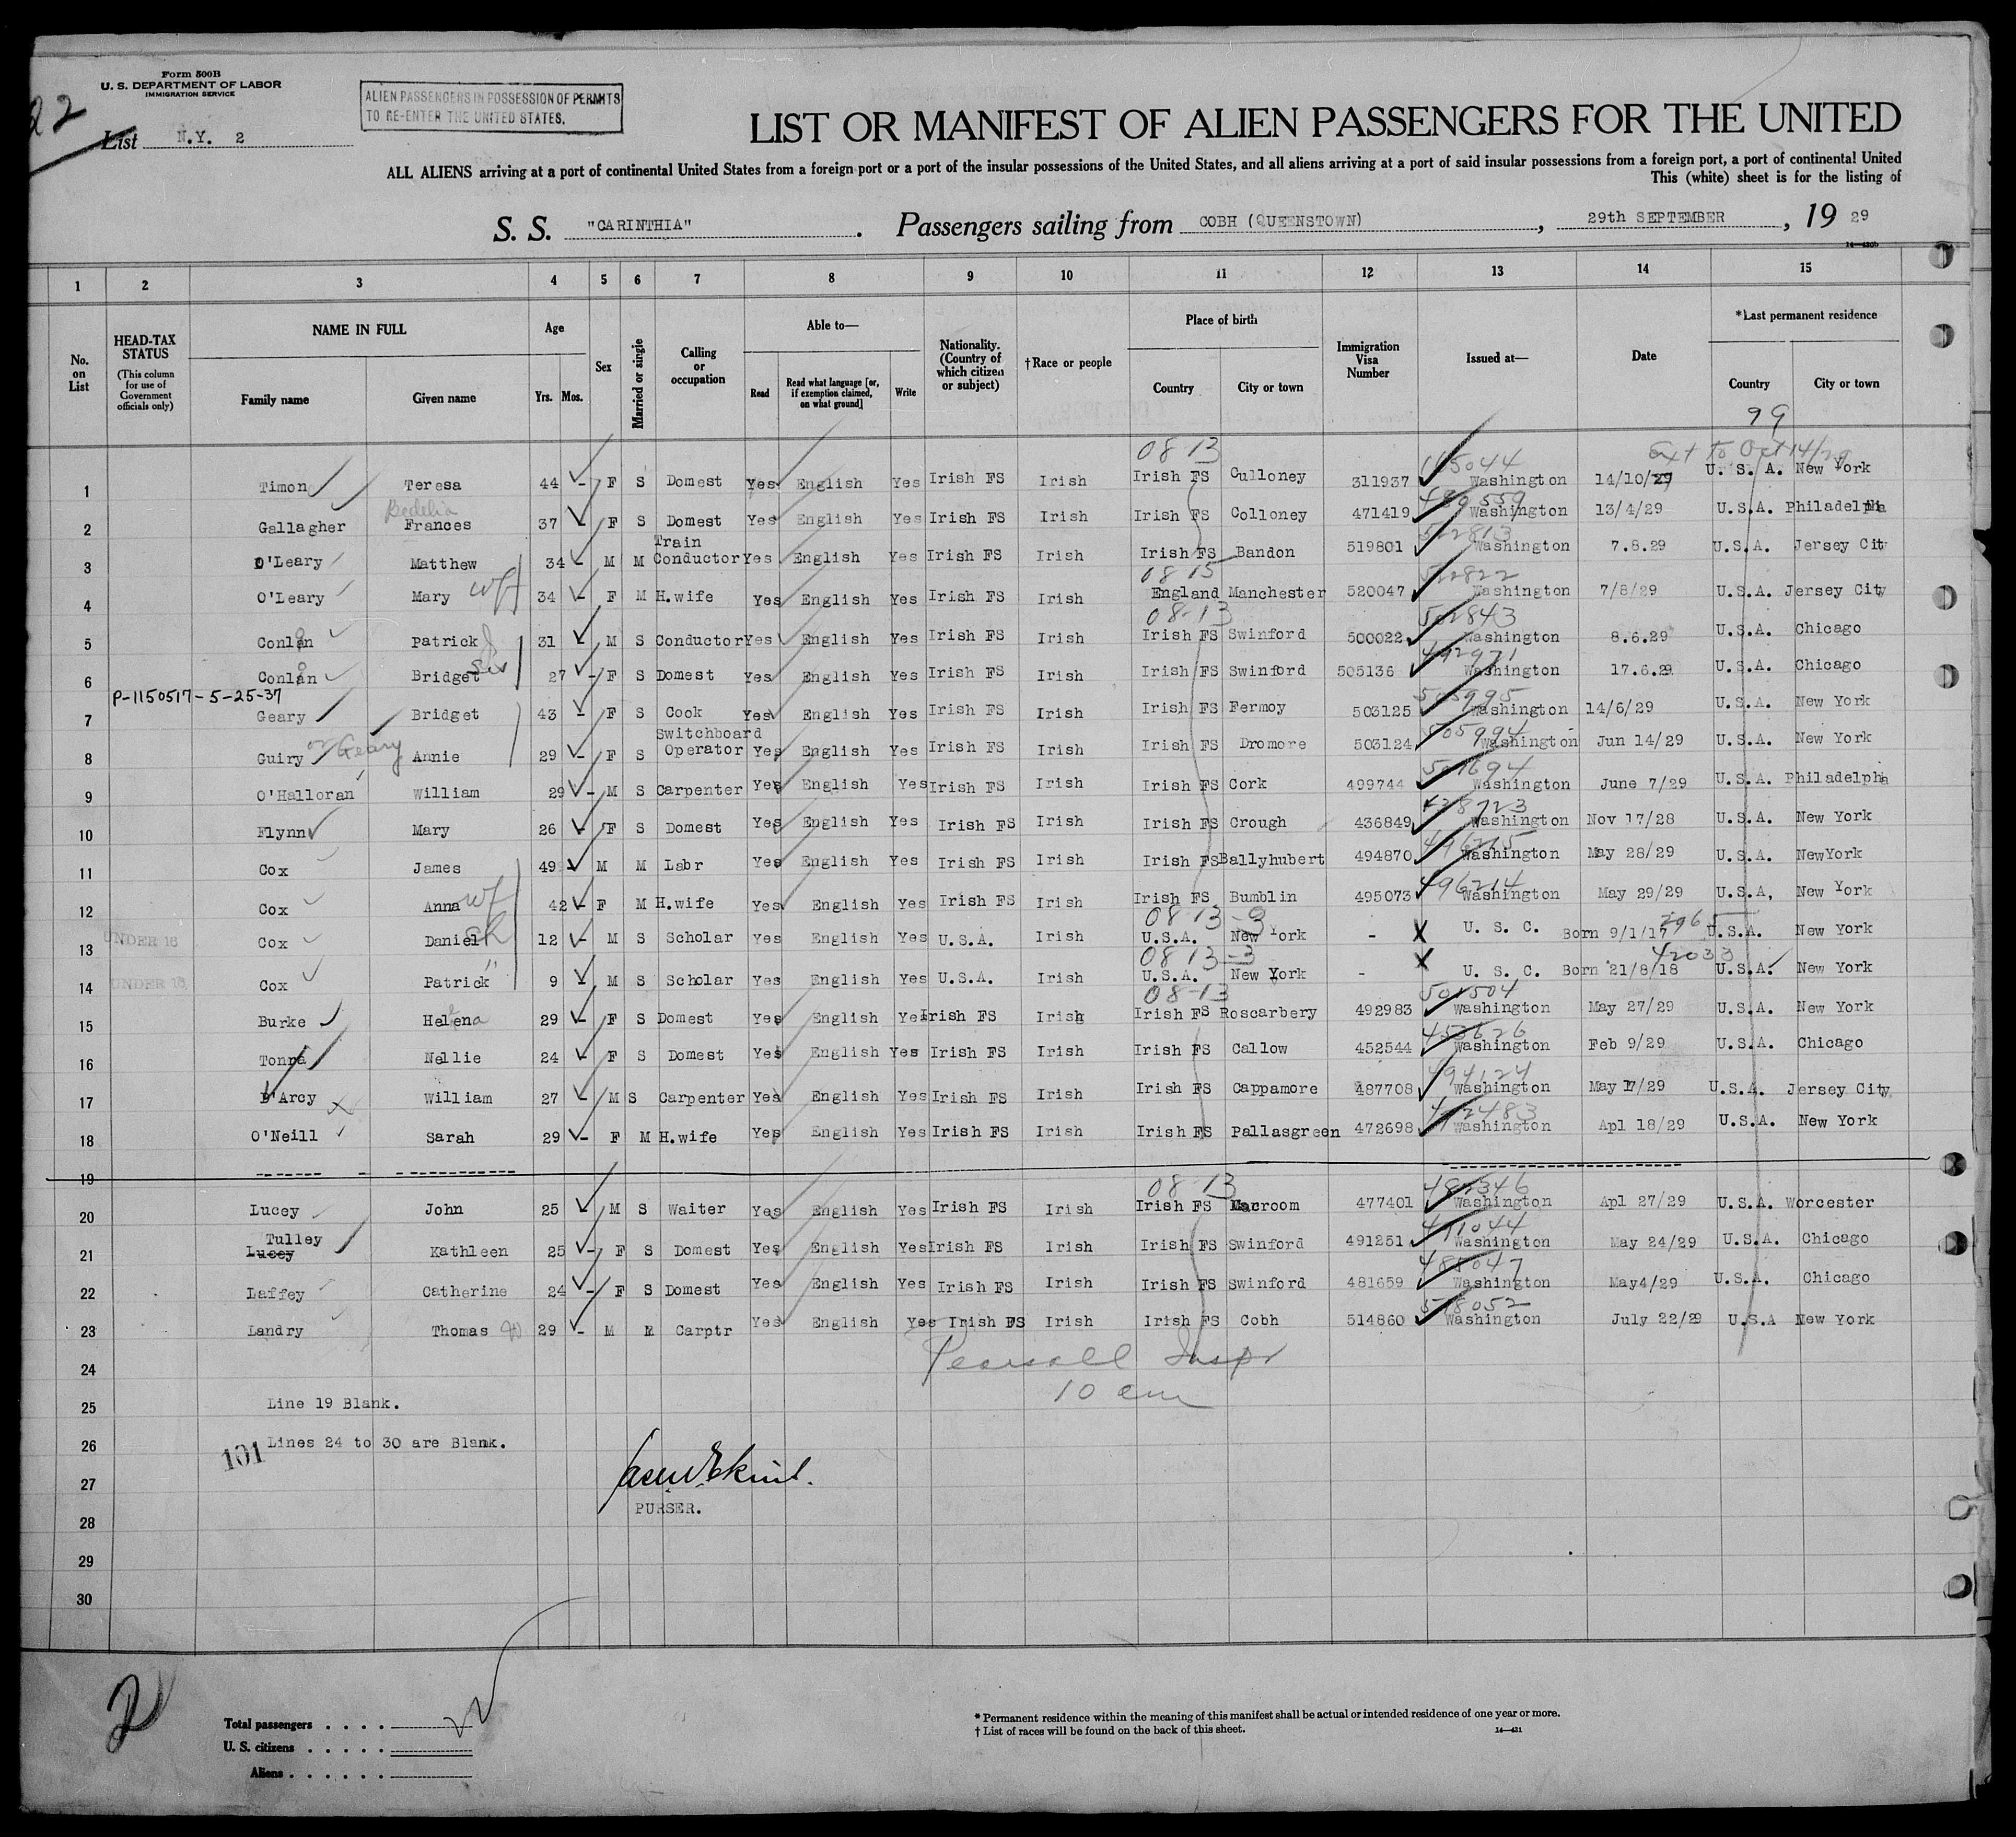 Form 500B
U. S. DEPARTMENT OF LABOR
IMMIGRATION SERVICE
22
List N.Y. 2
ALIEN PASSENGERS IN POSSESSION OF PERMITS
TO RE-ENTER THE UNITED STATES.
LIST OR MANIFEST OF ALIEN PASSENGERS FOR THE UNITED
ALL ALIENS arriving at a port of continental United States from a foreign port or a port of the insular possessions of the United States, and all aliens arriving at a port of said insular possessions from a foreign port, a port of continental United
This (white) sheet is for the listing of
S. S. "CARINTHIA". Passengers sailing from COBH (QUEENSTOWN), 29th SEPTEMBER, 19 29
1 2 3 4 5 6 7 8 9 10 11 12 13 14 15
No. on List
HEAD-TAX STATUS (This column for use of Government officials only)
NAME IN FULL Family name Given name
Age Yrs. Mos.
Sex
Married or single
Calling or occupation
Able to— Read Read what language [or, if exemption claimed, on what ground] Write
Nationality. (Country of which citizen or subject)
†Race or people
Place of birth Country City or town
Immigration Visa Number
Issued at—
Date
*Last permanent residence Country City or town
99
08-13 Ext to Oct 14/29
1 Timon Teresa 44 - F S Domest Yes English Yes Irish FS Irish Irish FS Culloney 311937 Washington 14/10/29 U. S. A. New York
Bedelia
2 Gallagher Frances 37 - F S Domest Yes English Yes Irish FS Irish Irish FS Colloney 471419 Washington 13/4/29 U.S.A. Philadelphia
522813
3 O'Leary Matthew 34 - M M Train Conductor Yes English Yes Irish FS Irish Irish FS Bandon 519801 Washington 7.8.29 U.S.A. Jersey City
08-15 522822
4 O'Leary Mary wf 34 - F M H.wife Yes English Yes Irish FS Irish England Manchester 520047 Washington 7/8/29 U.S.A. Jersey City
08-13 502843
5 Conlon Patrick 31 - M S Conductor Yes English Yes Irish FS Irish Irish FS Swinford 500022 Washington 8.6.29 U.S.A. Chicago
6 Conlon Bridget Sis 27 - F S Domest Yes English Yes Irish FS Irish Irish FS Swinford 505136 Washington 17.6.29 U.S.A. Chicago
P-1150517-5-25-37 505995
7 Geary Bridget 43 - F S Cook Yes English Yes Irish FS Irish Irish FS Fermoy 503125 Washington 14/6/29 U.S.A. New York
505994
8 Guiry or Geary Annie 29 - F S Switchboard Operator Yes English Yes Irish FS Irish Irish FS Dromore 503124 Washington Jun 14/29 U.S.A. New York
501694
9 O'Halloran William 29 - M S Carpenter Yes English Yes Irish FS Irish Irish FS Cork 499744 Washington June 7/29 U.S.A. Philadelphia
10 Flynn Mary 26 - F S Domest Yes English Yes Irish FS Irish Irish FS Crough 436849 Washington Nov 17/28 U.S.A. New York
496215
11 Cox James 49 M M Labr Yes English Yes Irish FS Irish Irish FS Ballyhubert 494870 Washington May 28/29 U.S.A. NewYork
496214
12 Cox Anna wf 42 - F M H.wife Yes English Yes Irish FS Irish Irish FS Bumblin 495073 Washington May 29/29 U.S.A, New York
08 13 -3
13 UNDER 16 Cox Daniel ch 12 - M S Scholar Yes English Yes U.S.A. Irish U.S.A. New York - X U. S. C. Born 9/1/17 U.S.A. New York
08 13 -3
14 UNDER 16 Cox Patrick " 9 - M S Scholar Yes English Yes U.S.A. Irish U.S.A. New York - X U. S. C. Born 21/8/18 U.S.A. New York
08-13 501504
15 Burke Helena 29 - F S Domest Yes English Yes Irish FS Irish Irish FS Roscarbery 492983 Washington May 27/29 U.S.A. New York
453626
16 Tonra Nellie 24 - F S Domest Yes English Yes Irish FS Irish Irish FS Callow 452544 Washington Feb 9/29 U.S.A. Chicago
494124
17 D'Arcy William 27 - M S Carpenter Yes English Yes Irish FS Irish Irish FS Cappamore 487708 Washington May 17/29 U.S.A. Jersey City
18 O'Neill Sarah 29 - F M H.wife Yes English Yes Irish FS Irish Irish FS Pallasgreen 472698 Washington Apl 18/29 U.S.A. New York
19
08-13
20 Lucey John 25 M S Waiter Yes English Yes Irish FS Irish Irish FS Macroom 477401 Washington Apl 27/29 U.S.A. Worcester
491044
21 Tulley Lucey Kathleen 25 - F S Domest Yes English Yes Irish FS Irish Irish FS Swinford 491251 Washington May 24/29 U.S.A. Chicago
22 Laffey Catherine 24 - F S Domest Yes English Yes Irish FS Irish Irish FS Swinford 481659 Washington May4/29 U.S.A. Chicago
518052
23 Landry Thomas 29 - M M Carptr Yes English Yes Irish FS Irish Irish FS Cobh 514860 Washington July 22/29 U.S.A New York
24 Pearsall Inspr
25 Line 19 Blank. 10 am
26 Lines 24 to 30 are Blank.
101
27
PURSER.
28
29
30
2
Total passengers
U. S. citizens
Aliens
* Permanent residence within the meaning of this manifest shall be actual or intended residence of one year or more.
† List of races will be found on the back of this sheet. 14—431